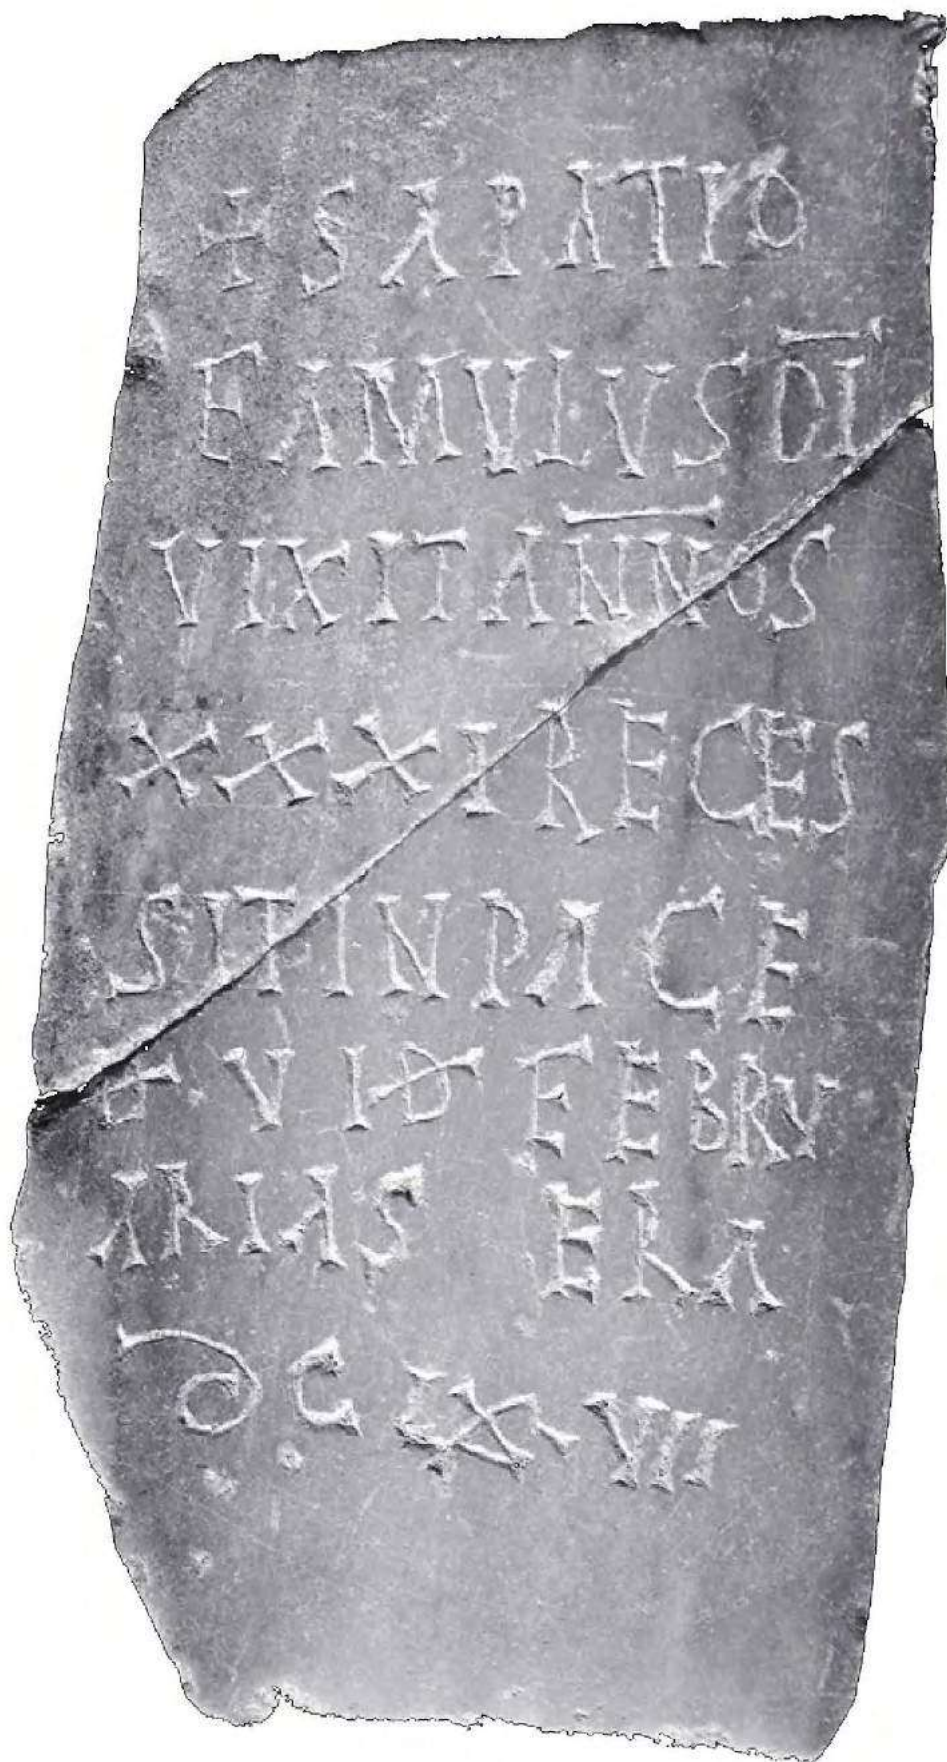 + SAPATIO
FAMULUS DI
VIXIT ANNOS
XXXI RECES
SIT IN PACE
D · V ID FEBRU
ARIAS ERA
DCLXVII